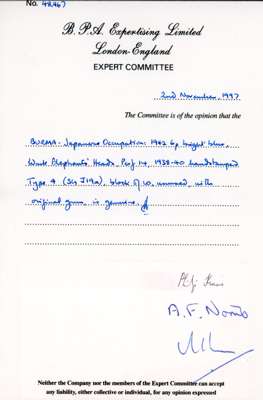 No. 48,467
B.P.A. Expertising Limited
London·England
EXPERT COMMITTEE
2nd November, 1997
The Committee is of the opinion that the
BURMA - Japanese Occupation: 1942 6p bright blue,
Wmk Elephants' Heads, Perf 14, 1938-40 handstamped
Type 4 (SG J19a), block of 10, unused, with
original gum, is genuine.
A.F. Norris
Neither the Company nor the members of the Expert Committee can accept
any liability, either collective or individual, for any opinion expressed